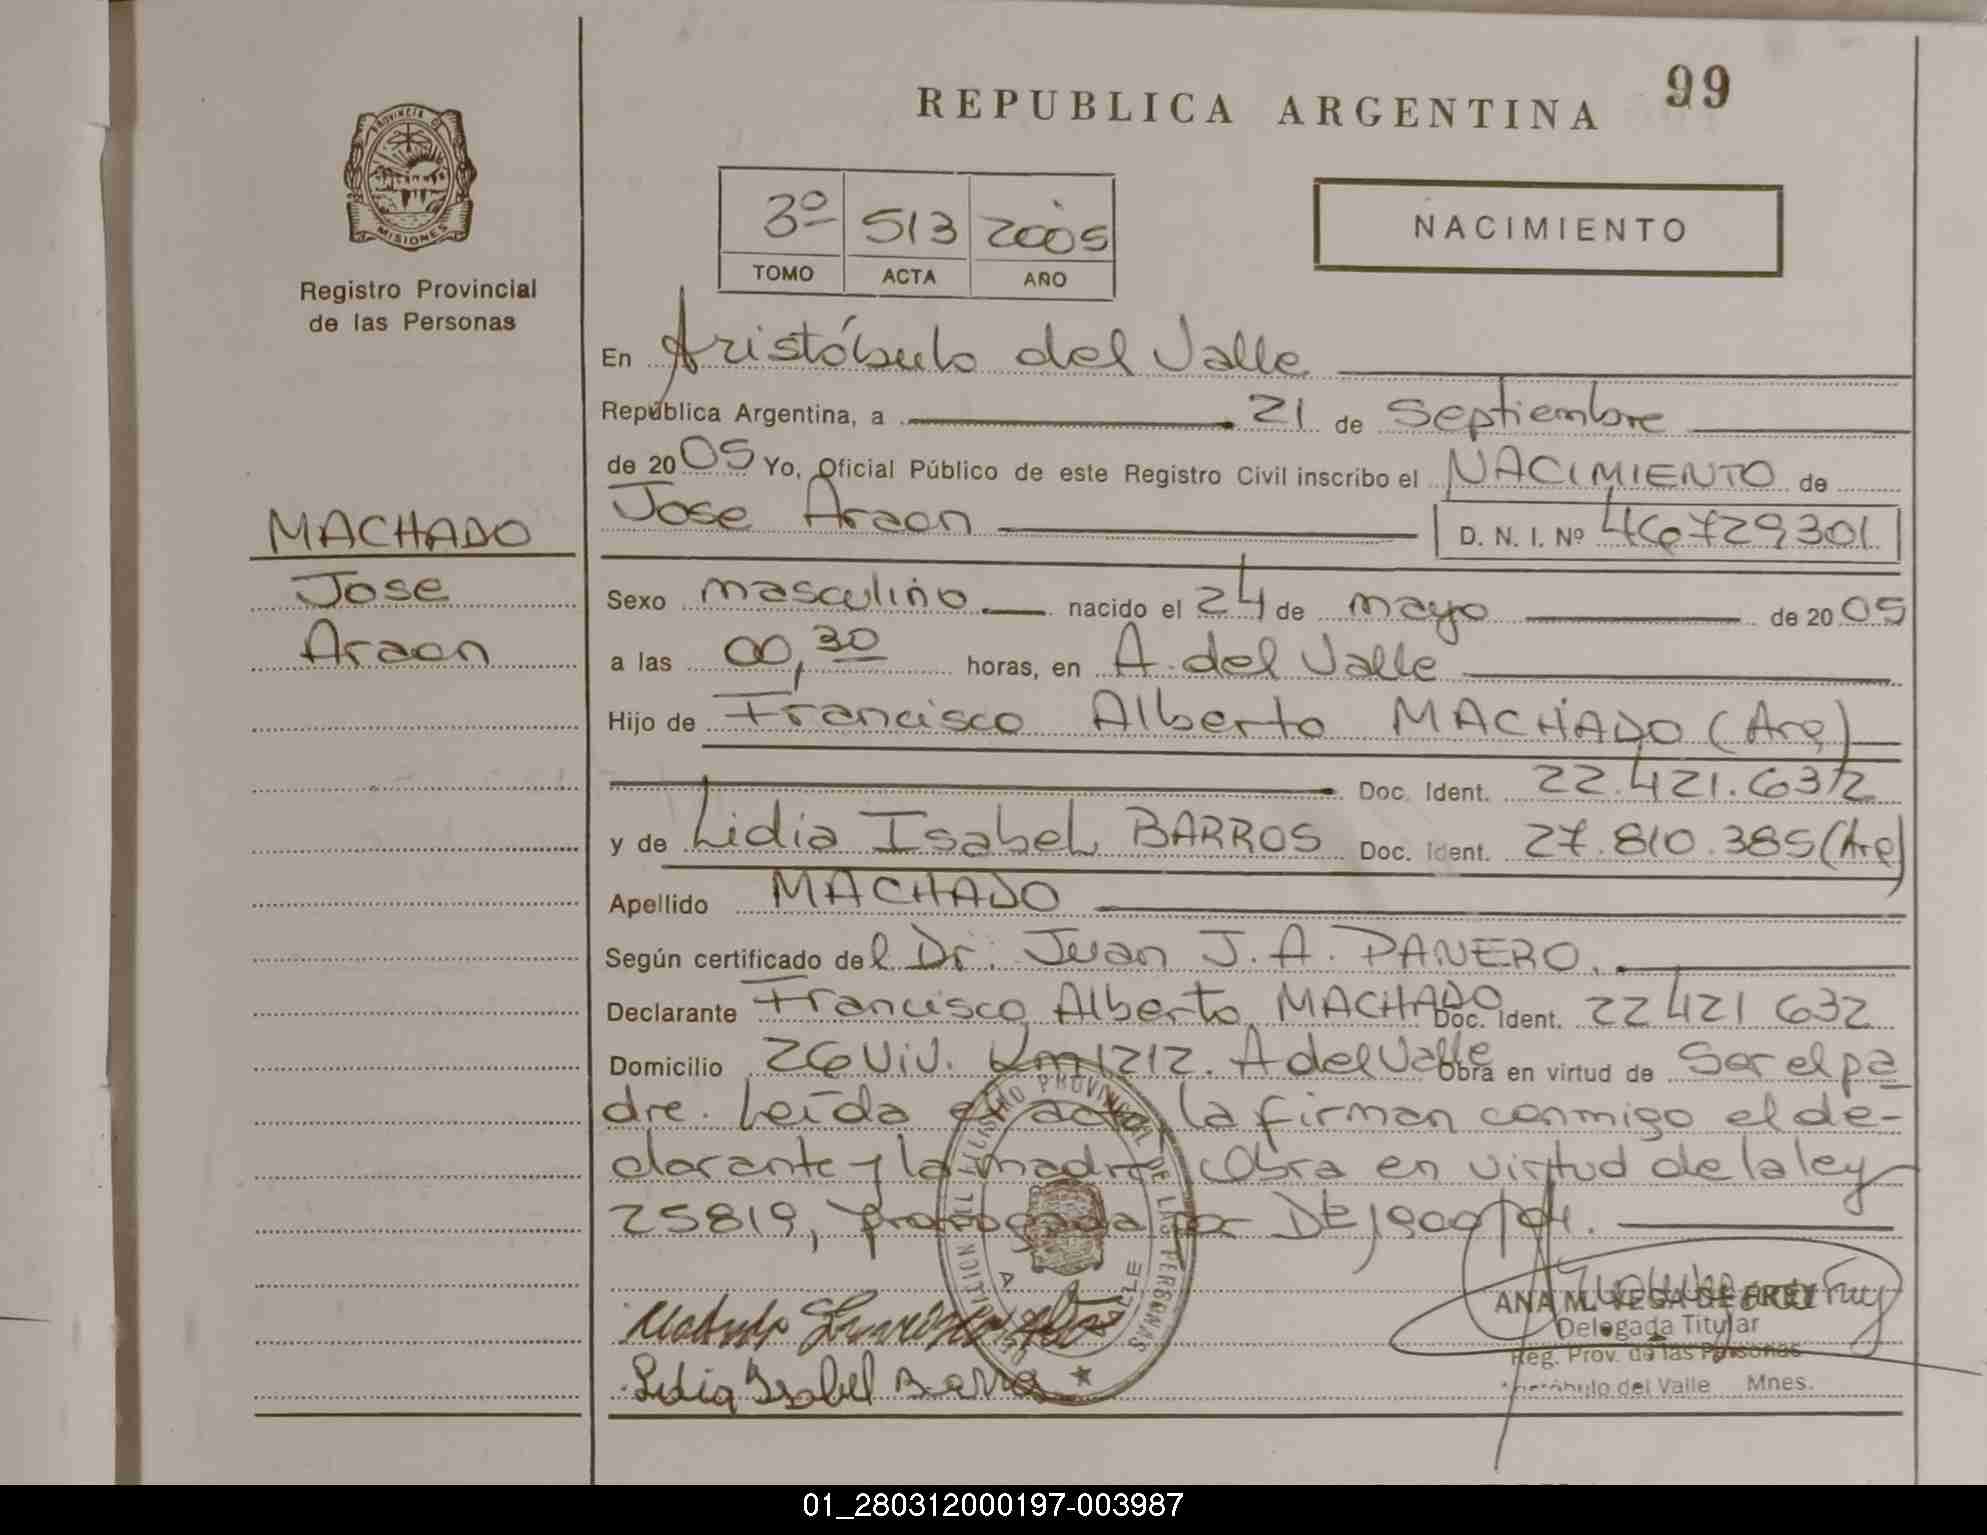 REPUBLICA ARGENTINA 99
PROVINCIA D
MISIONES
Registro Provincial
de las Personas
3º 513 2005
TOMO ACTA AÑO
NACIMIENTO
En Aristóbulo del Valle
República Argentina, a 21 de Septiembre
de 2005 Yo, Oficial Público de este Registro Civil inscribo el NACIMIENTO de
Jose Araon D. N. I. Nº 46729301
MACHADO
Jose
Araon
Sexo masculino nacido el 24 de mayo de 2005
a las 00,30 horas, en A. del Valle
Hijo de Francisco Alberto MACHADO (Arg)
Doc. Ident. 22.421.632
y de Lidia Isabel BARROS Doc. Ident. 27.810.385 (Arg)
Apellido MACHADO
Según certificado del Dr. Juan J. A. PANERO.
Declarante Francisco Alberto MACHADO Doc. Ident. 22 421 632
Domicilio 26 Viv. Km 1212. A del Valle Obra en virtud de Ser el pa
dre. Leída el acta, la firman conmigo el de-
clarante y la madre. Obra en virtud de la ley
25819, prorrogada por
Lidia Isabel Barros
ANA M. VEGA DE
Delegada Titular
Reg. Prov. de las Personas
Aristóbulo del Valle Mnes.
REGISTRO PROVINCIAL DE LAS PERSONAS
01_280312000197-003987